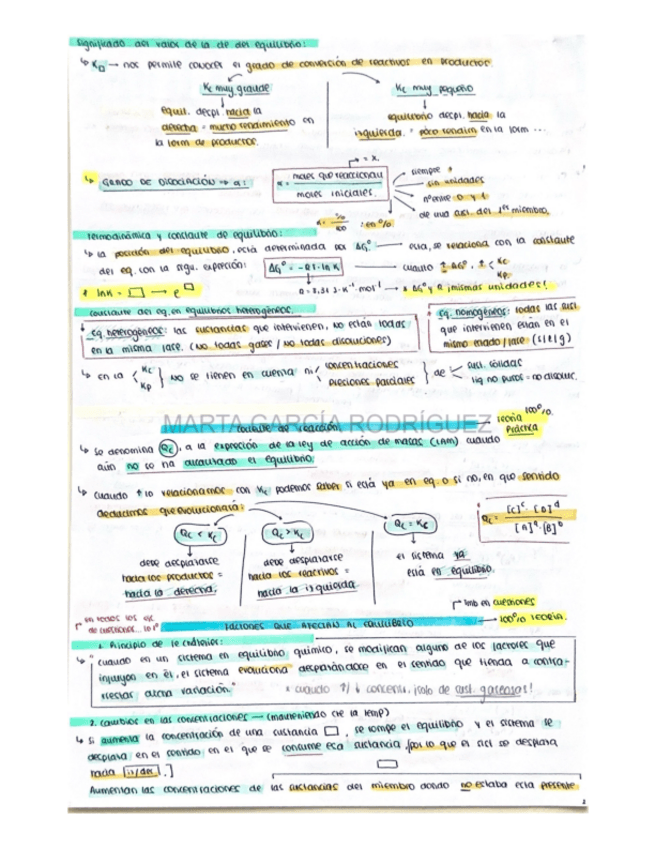 Significado del valor de la cte del equilibrio:
↳ Kc → nos permite conocer el grado de conversión de reactivos en productos.
Kc muy grande
Kc muy pequeño
equil. despl. hacia la
derecha = mucho rendimiento en
la form de productos.
equilibrio despl. hacia la
izquierda. = poco rendim en la form ...
↳ GRADO DE DISOCIACIÓN → α:
→ = x.
α = moles que reaccionan
moles iniciales.
siempre +
sin unidades
nº entre 0 y 1
de una sust. del 1er miembro.
α = %
100
: en %
Termodinámica y constante de equilibrio:
↳ la posición del equilibrio, está determinada por ΔG° → esta, se relaciona con la constante
del eq. con la sigu. expresión: ΔG° = -RT·ln K → cuanto ↑ ΔG°, ↑ Kc
Kp
* ln K = □ → e□
R = 8,31 J·K⁻¹·mol⁻¹ → * ΔG° y R ¡mismas unidades!
Constante del eq. en equilibrios heterogéneos.
↓ Eq. heterogéneos: las sustancias que intervienen, no están todas
en la misma fase. (No todas gases / No todas disoluciones)
Eq. homogéneos: todas las sust
que intervienen están en el
mismo estado / fase (s l g)
↳ en la Kc
Kp
no se tienen en cuenta ni concentraciones
presiones parciales
de sust. sólidas
líq no puros = no disoluc.
MARTA GARCÍA RODRÍGUEZ
Cociente de reacción
teoría 100%.
Práctica
↳ Se denomina Qc, a la expresión de la ley de acción de masas (LAM) cuando
aún no se ha alcanzado el equilibrio.
↳ cuando ↑ lo relacionamos con Kc podemos saber si está ya en eq. o si no, en que sentido
deducimos que evolucionará:
Qc < Kc
Qc > Kc
Qc = Kc
Qc = [C]ᶜ · [D]ᵈ
[A]ᵃ · [B]ᵇ
debe desplazarse
hacia los productos =
hacia la derecha.
debe desplazarse
hacia los reactivos =
hacia la izquierda
el sistema ya
está en equilibrio.
en todos los ej.
de cuestiones
FACTORES QUE AFECTAN AL EQUILIBRIO
tmb en cuestiones
→ 100% teoría.
1. Principio de le Chatelier:
↳ "cuando en un sistema en equilibrio químico, se modifican alguno de los factores que
influyen en él, el sistema evoluciona desplazándose en el sentido que tienda a contra-
rrestar dicha variación."
* cuando ↑/↓ concentr, ¡solo de sust. gaseosas!
2. Cambios en las concentraciones — (manteniendo cte la temp)
↳ Si aumenta la concentración de una sustancia □, se rompe el equilibrio y el sistema se
desplaza en el sentido en el que se consume esa sustancia, [por lo que el sist se desplaza
hacia [iz/der].]
Aumentan las concentraciones de las sustancias del miembro donde no estaba esta presente